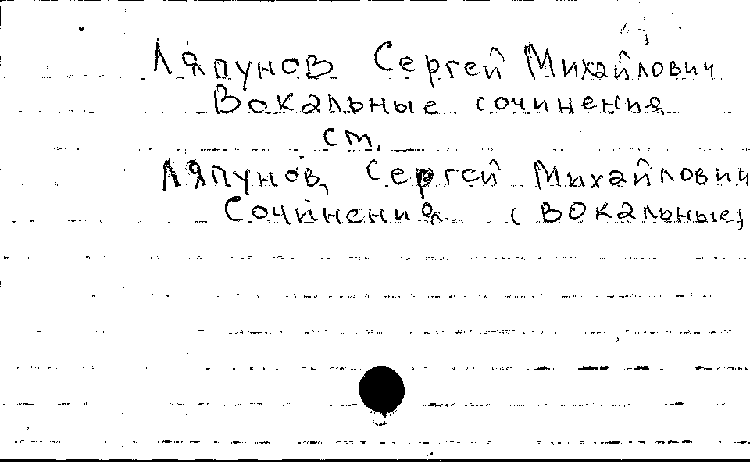 Ляпунов Сергей Михайлович
Вокальные сочинения
см.
Ляпунов, Сергей Михайлович
Сочинения (вокальные)